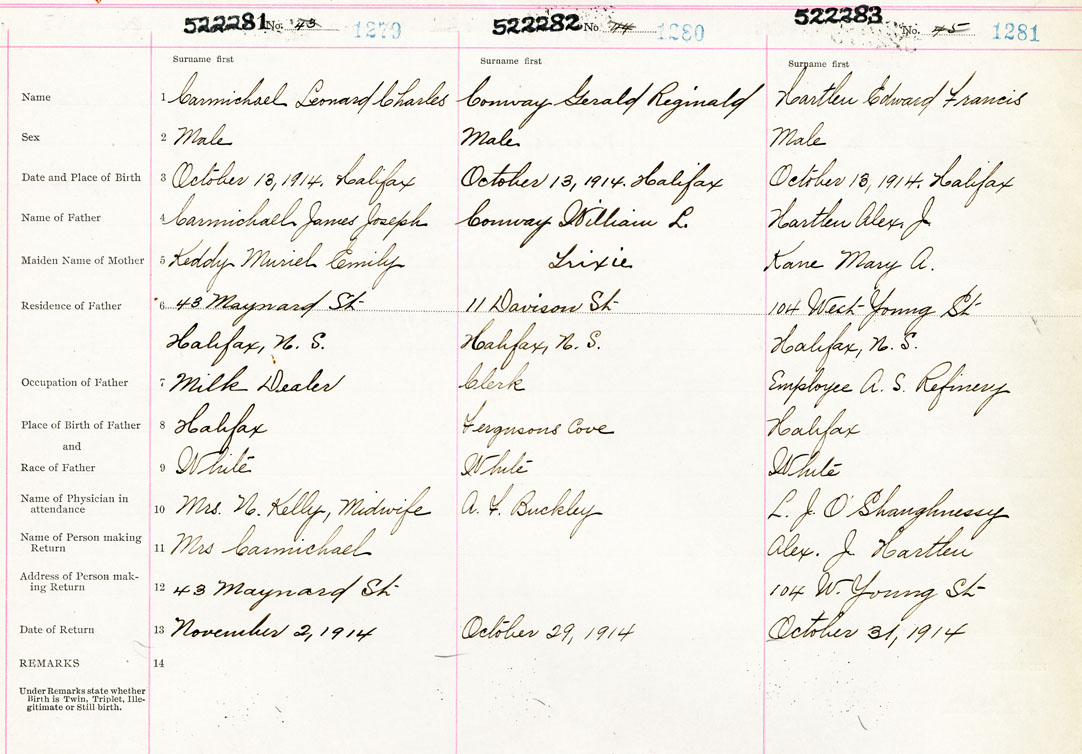 522281 No. 43 1279 522282 No. 44 1280 522283 No. 45 1281
Surname first Surname first Surname first
Name 1 Carmichael Leonard Charles Conway Gerald Reginald Hartlen Edward Francis
Sex 2 Male Male Male
Date and Place of Birth 3 October 13, 1914. Halifax October 13, 1914. Halifax October 13, 1914. Halifax
Name of Father 4 Carmichael James Joseph Conway William L. Hartlen Alex. J
Maiden Name of Mother 5 Keddy Muriel Emily Trixie Kane Mary A.
Residence of Father 6 43 Maynard St 11 Davison St 104 West Young St
Halifax, N. S. Halifax, N. S. Halifax, N. S.
Occupation of Father 7 Milk Dealer Clerk Employee A. S. Refinery
Place of Birth of Father 8 Halifax Fergusons Cove Halifax
and
Race of Father 9 White White White
Name of Physician in
attendance 10 Mrs. N. Kelly, Midwife A. F. Buckley L. J. O'Shaughnessy
Name of Person making
Return 11 Mrs Carmichael Alex. J Hartlen
Address of Person mak-
ing Return 12 43 Maynard St 104 W. Young St
Date of Return 13 November 2, 1914 October 29, 1914 October 31, 1914
REMARKS 14
Under Remarks state whether
Birth is Twin, Triplet, Ille-
gitimate or Still birth.